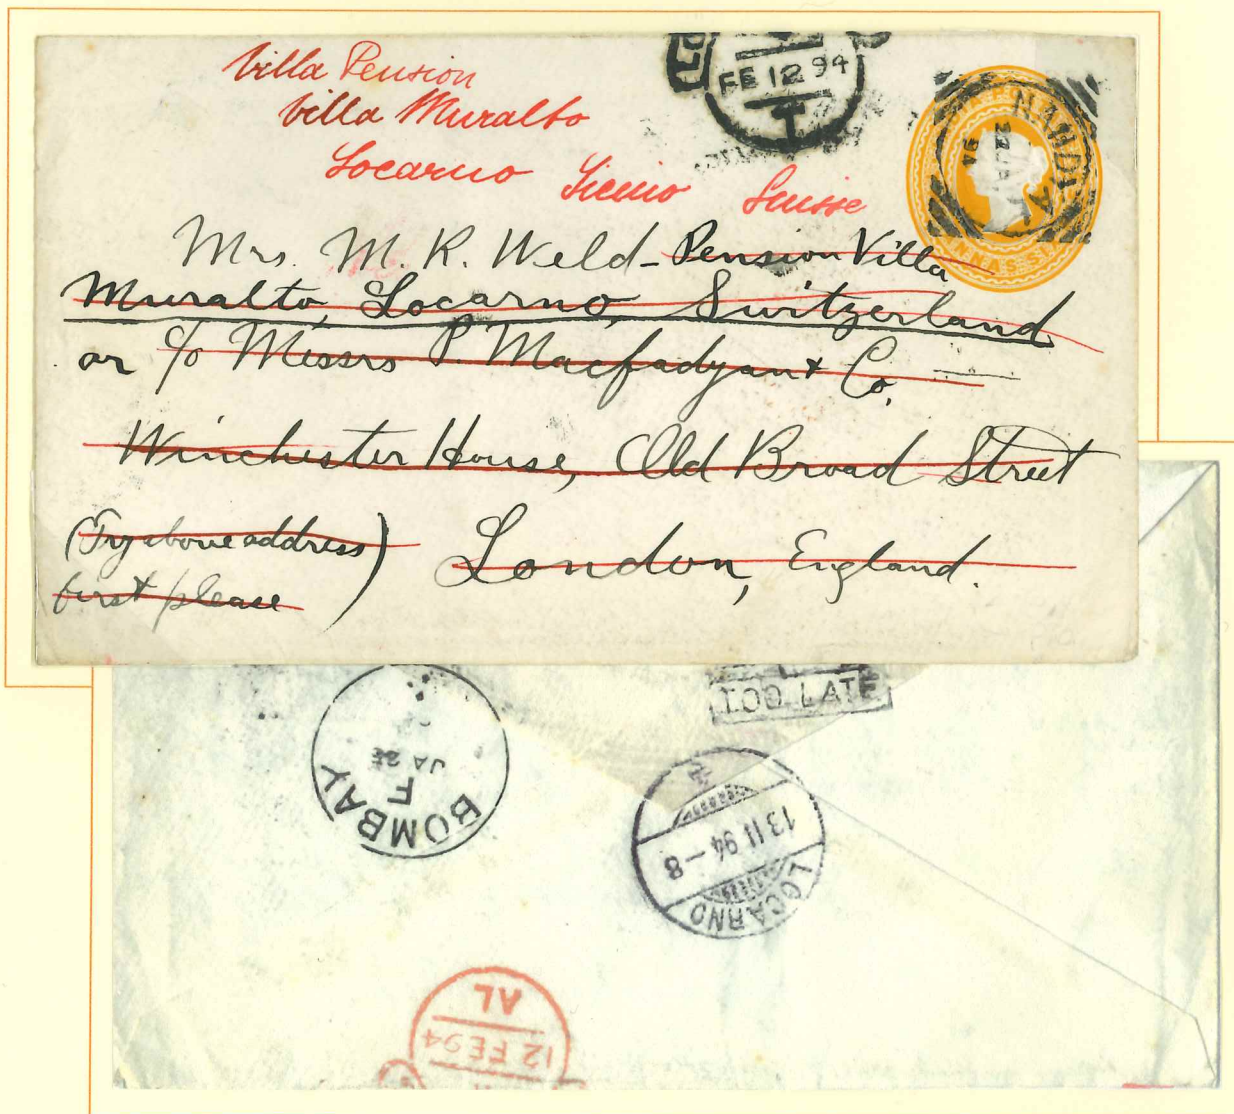 Villa Pension
Villa Muralto
Locarno Ticino Suisse
FE 12 94
T
NANDYAL
22 JA
94
Mrs. M. R. Weld - Pension Villa
Muralto, Locarno, Switzerland
or c/o Messrs P. Macfadyan & Co.
Winchester House, Old Broad Street
(Try above address)
first please
London, England.
TOO LATE
BOMBAY
F
JA
LOCARNO
13 II 94 - 8
AL
12 FE 94